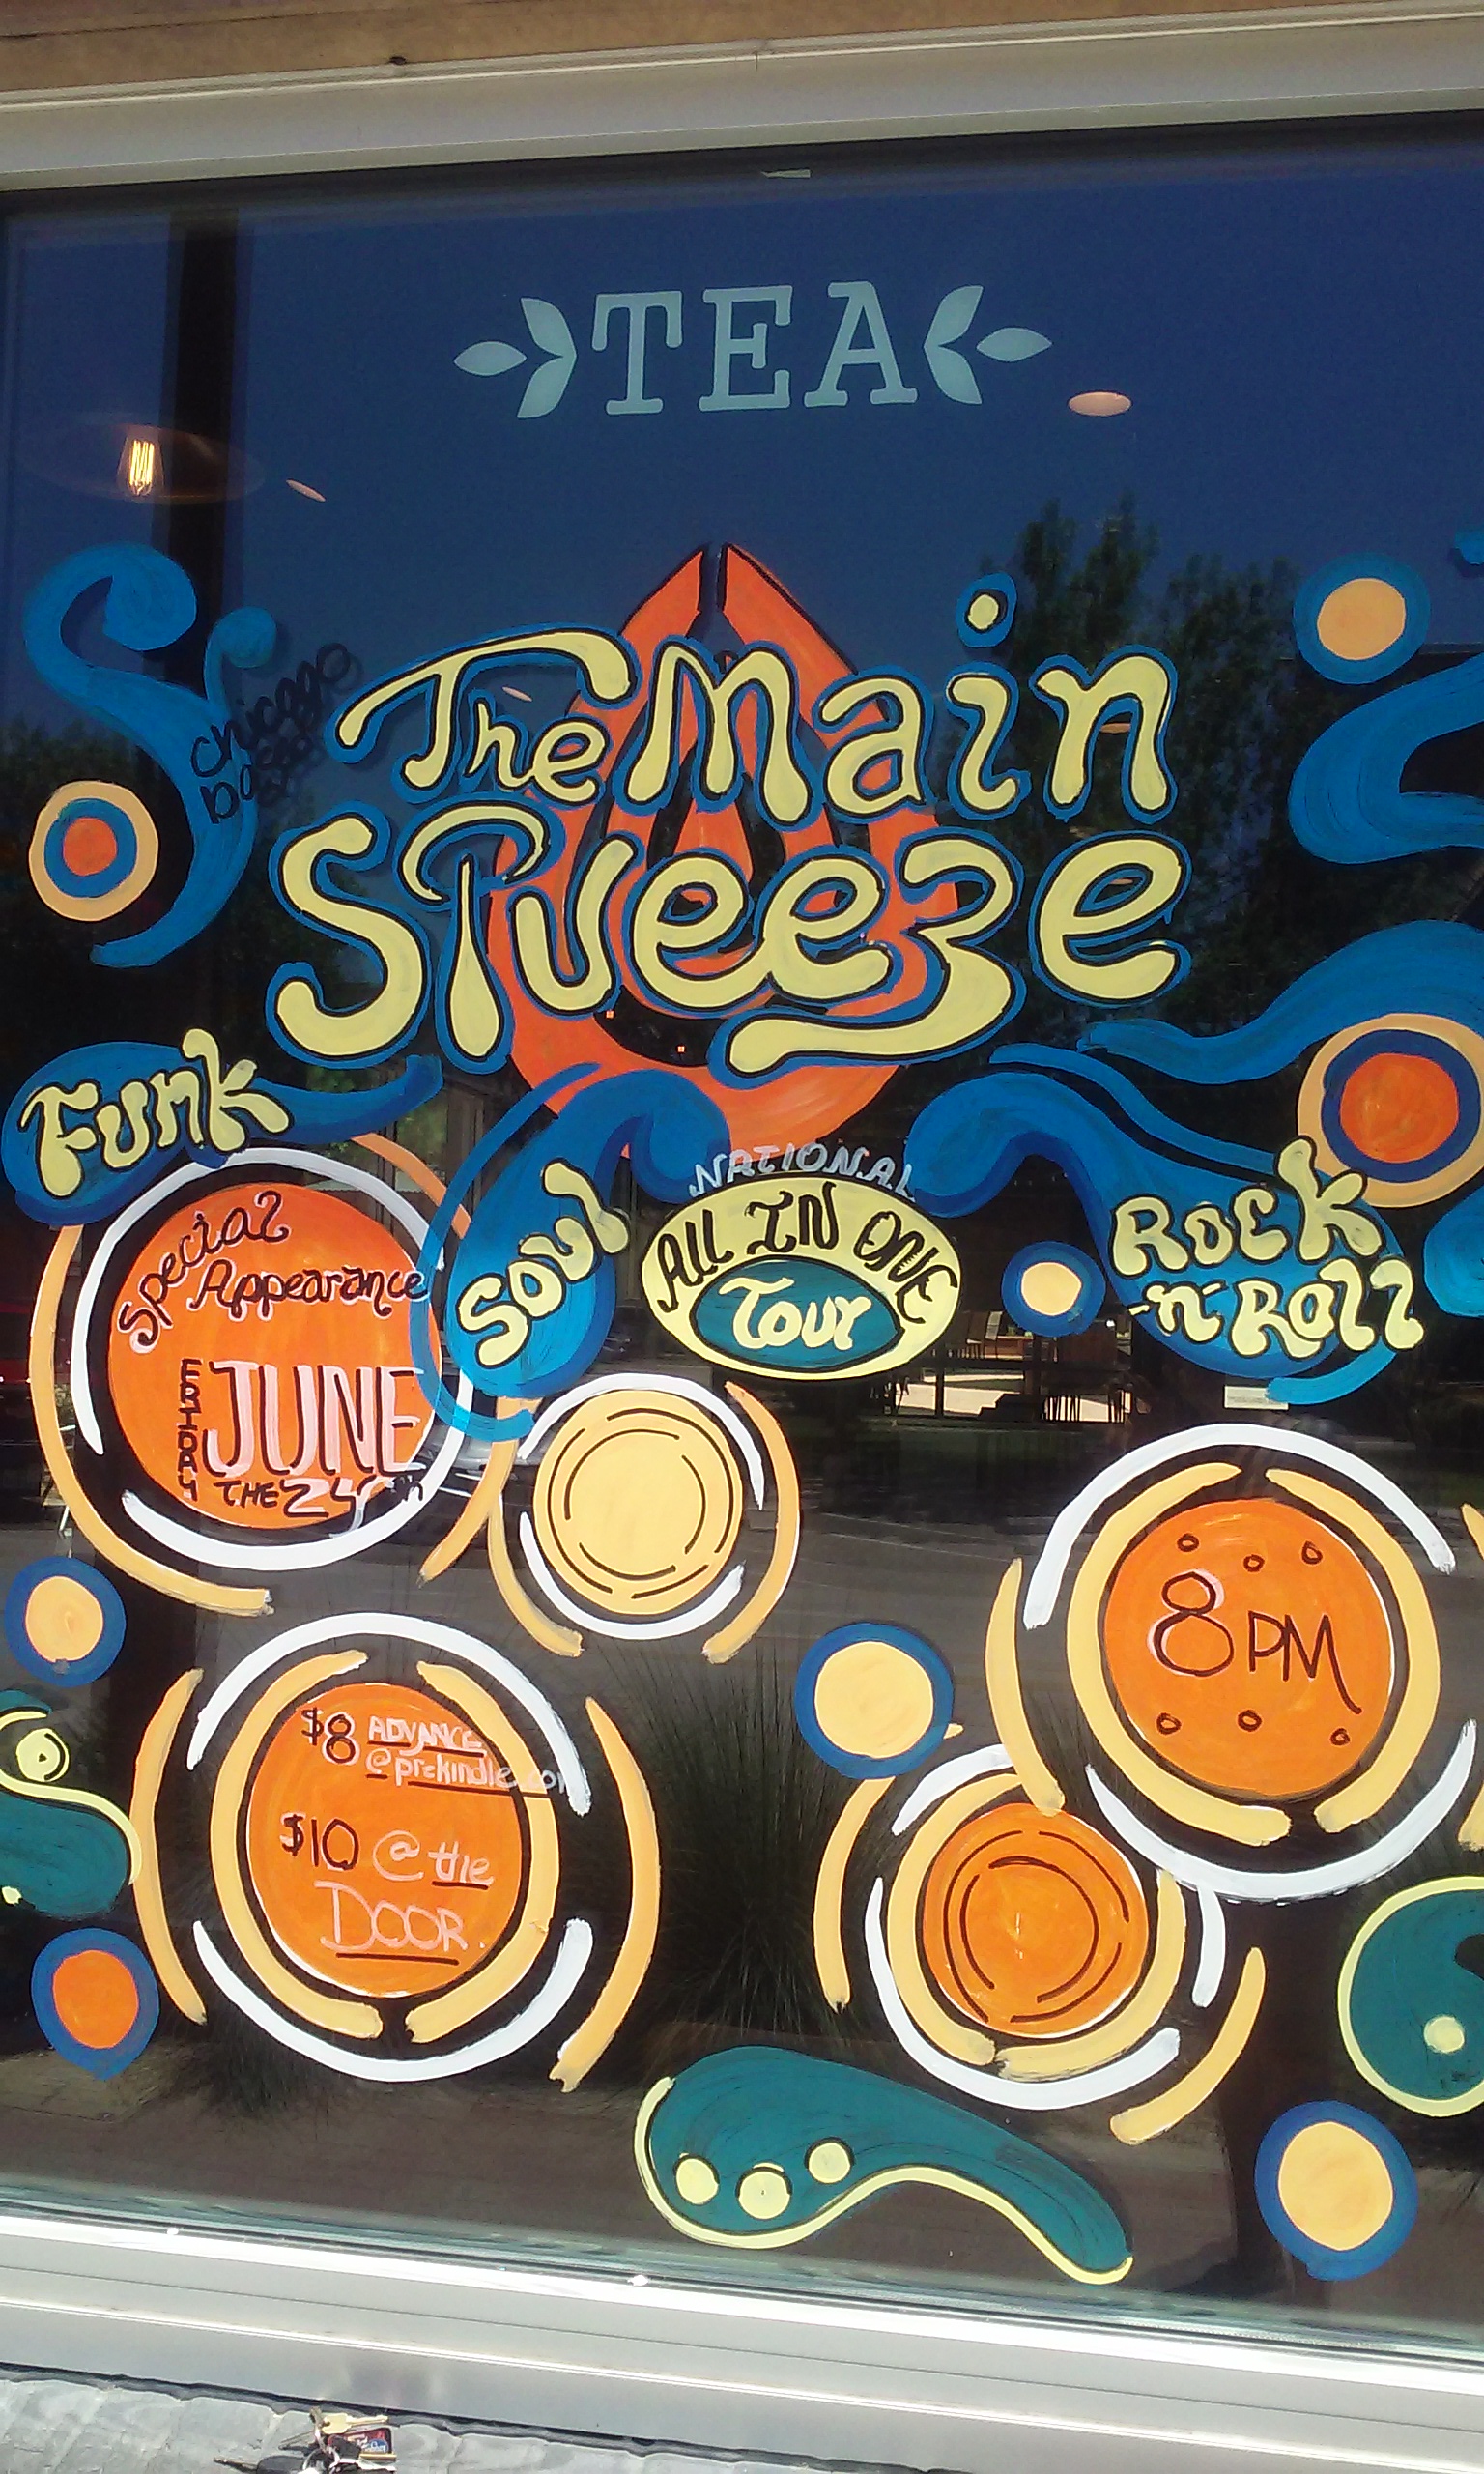 TEA
Chicago
based
The Main
Squeeze
Funk
Soul
NATIONAL
ALL IN ONE
Tour
Rock
-n-Roll
Special
Appearance
FRIDAY
JUNE
THE 24th
8 PM
$8 ADVANCE
@prekindle.com
$10 @ the
DOOR.